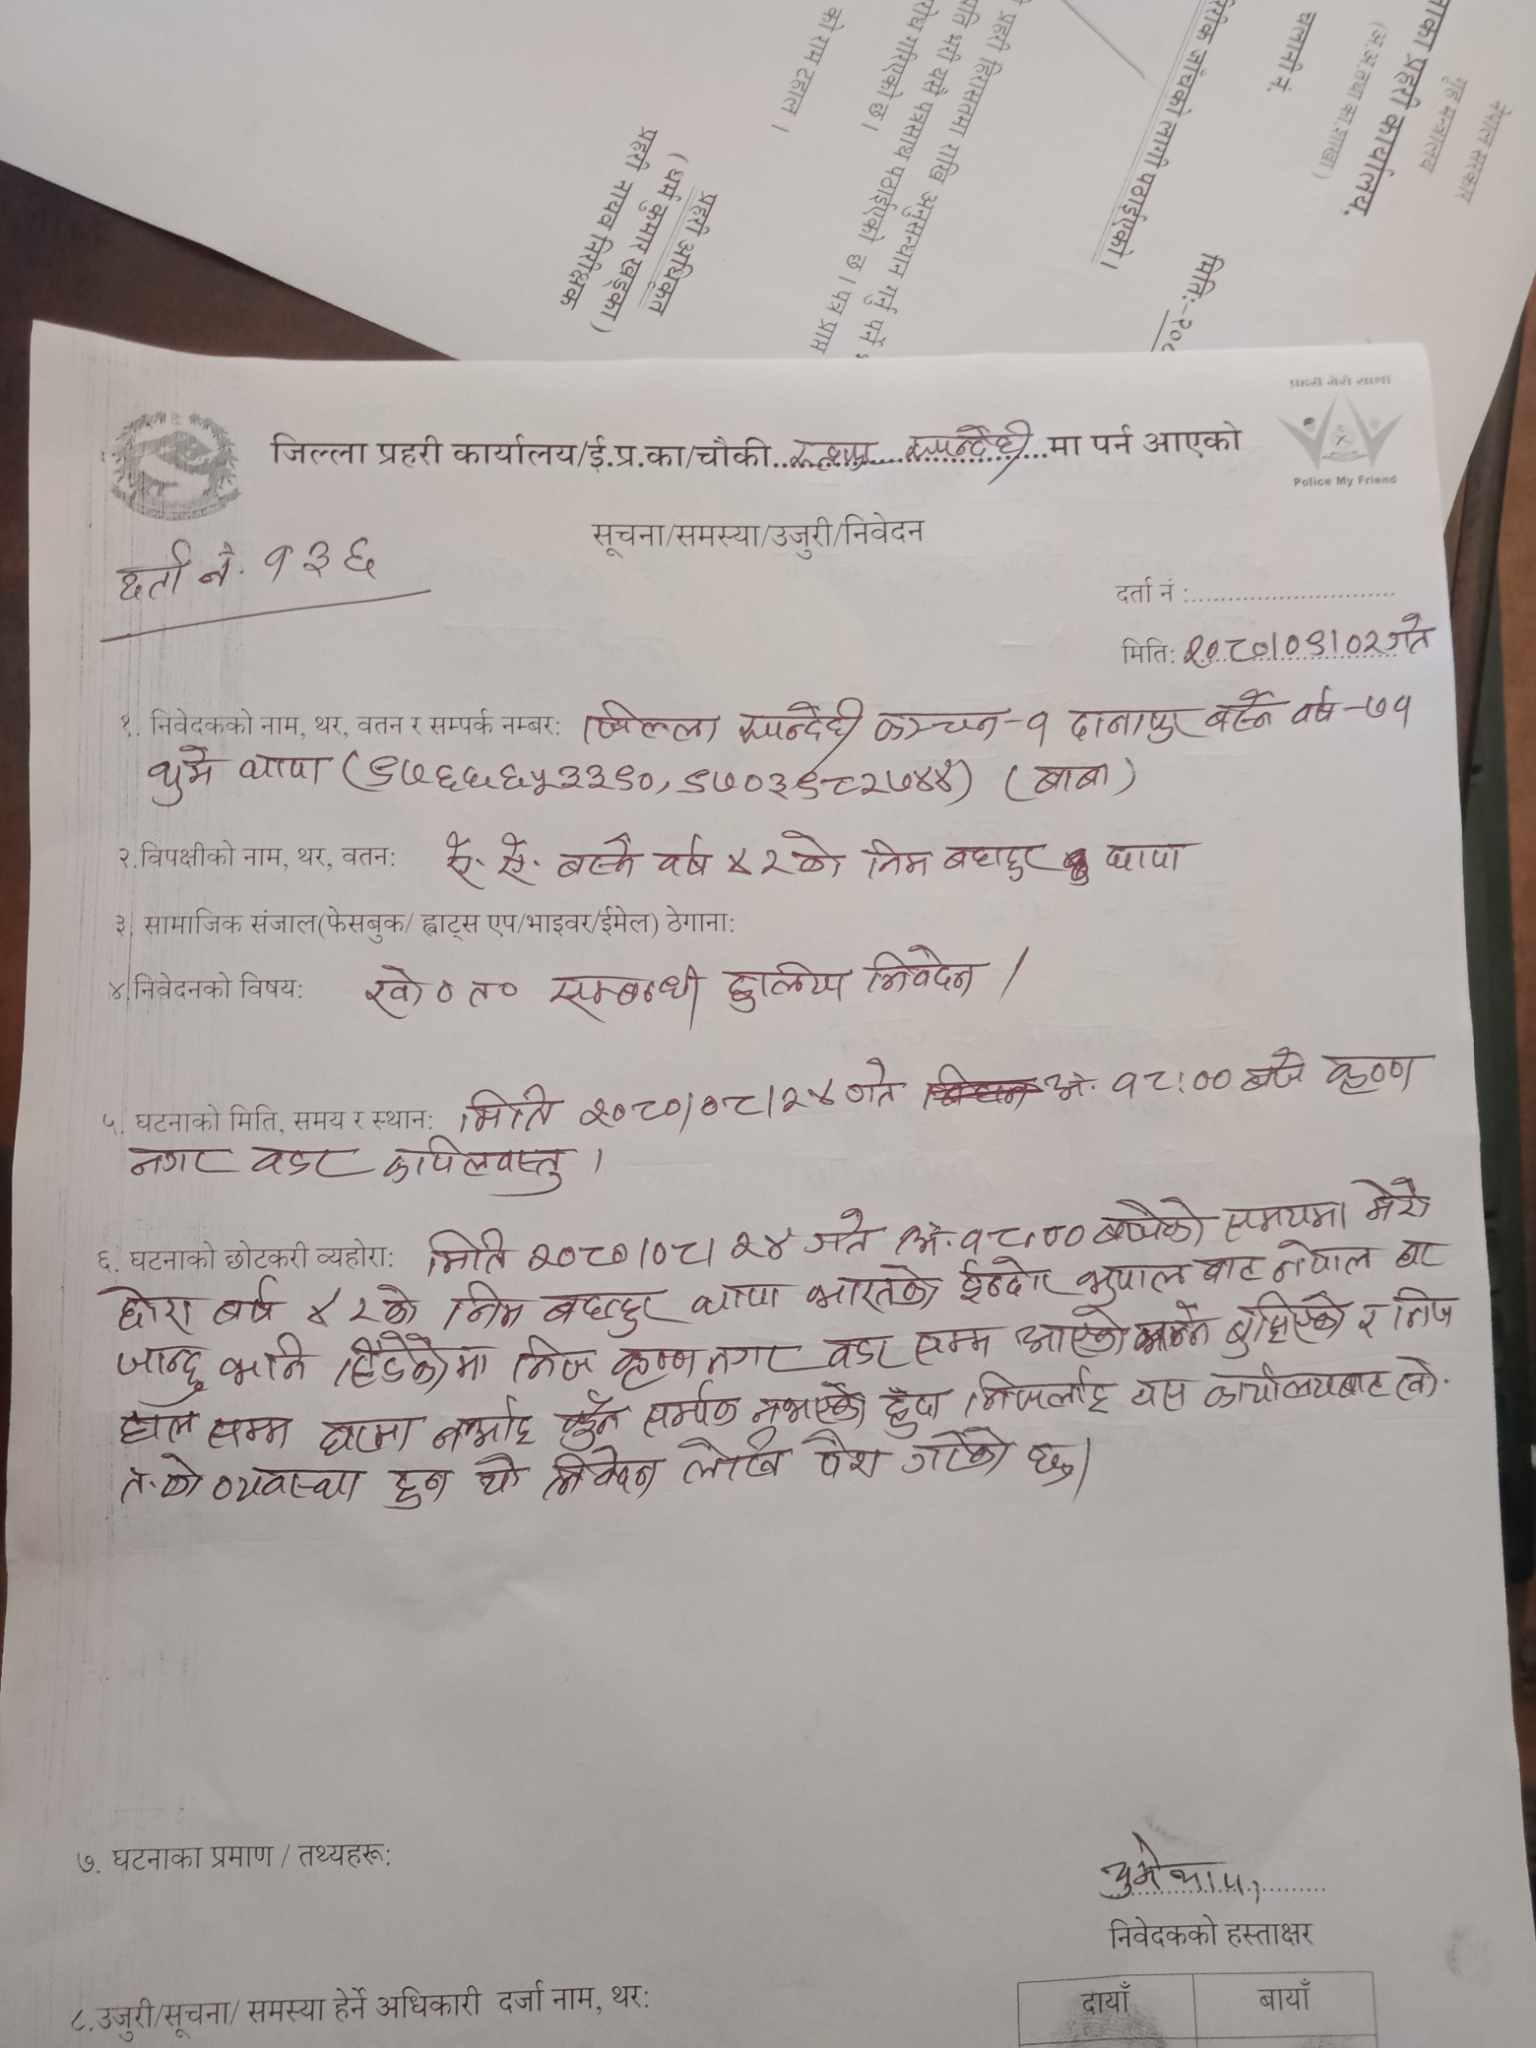 नेपाल सरकार
गृह मन्त्रालय
प्रहरी कार्यालय,
(अ.अ.तथा का.शाखा)
चलानी नं.
मितिः-२०८
जाँचको लागी पठाईएको।
प्रहरी हिरासतमा राखि अनुसन्धान गर्नु पर्ने
प्रति भरी यसै पत्रसाथ पठाईएको छ। पत्र प्राप्त
गरिएको छ।
को राम टहाल।
प्रहरी अधिकृत
(धर्म कुमार खड्का)
प्रहरी नायव निरीक्षक
प्रहरी मेरो साथी
Police My Friend
जिल्ला प्रहरी कार्यालय/ई.प्र.का/चौकी.. रुपन्देही...मा पर्न आएको
सूचना/समस्या/उजुरी/निवेदन
दर्ता नं. १३६
दर्ता नं :............................
मिति: २०८०।०९।०२ गते
१. निवेदकको नाम, थर, वतन र सम्पर्क नम्बर: जिल्ला रुपन्देही कञ्चन-१ दानापुर बस्ने वर्ष-७१
थापा (९७६६६५३३९०, ९७०३९८२७४४) (बाबा)
२.विपक्षीको नाम, थर, वतन: ऐ. ऐ. बस्ने वर्ष ४२ को निम बहादुर थापा
३. सामाजिक संजाल(फेसबुक/ ह्वाट्स एप/भाइवर/ईमेल) ठेगाना:
४.निवेदनको विषय: खो० त० सम्बन्धी निवेदन।
५. घटनाको मिति, समय र स्थान: मिति २०८०/०८/२४ गते अं. १८:०० बजे कृष्ण
नगर वडर कपिलवस्तु।
६. घटनाको छोटकरी व्यहोरा: मिति २०८०।०८।२४ गते अं.१८:०० बजेको समयमा मेरो
छोरा बर्ष ४२ को निम बहादुर थापा भारतको ईन्दोर भुपाल बाट नेपाल घर
जान्छु भनि हिंडेकोमा निज कृष्ण नगर वडर सम्म आएको भन्ने बुझिएको र निज
हाल सम्म घरमा नआई कुनै सर्म्पक नभएको हुँदा निजलाई यस कार्यालयबाट खो.
त.को व्यवस्था हुन यो निवेदन लेखि पेश गरेको छु।
७. घटनाका प्रमाण / तथ्यहरू:
थापा
निवेदकको हस्ताक्षर
८.उजुरी/सूचना/ समस्या हेर्ने अधिकारी दर्जा नाम, थर:
दायाँ
बायाँ